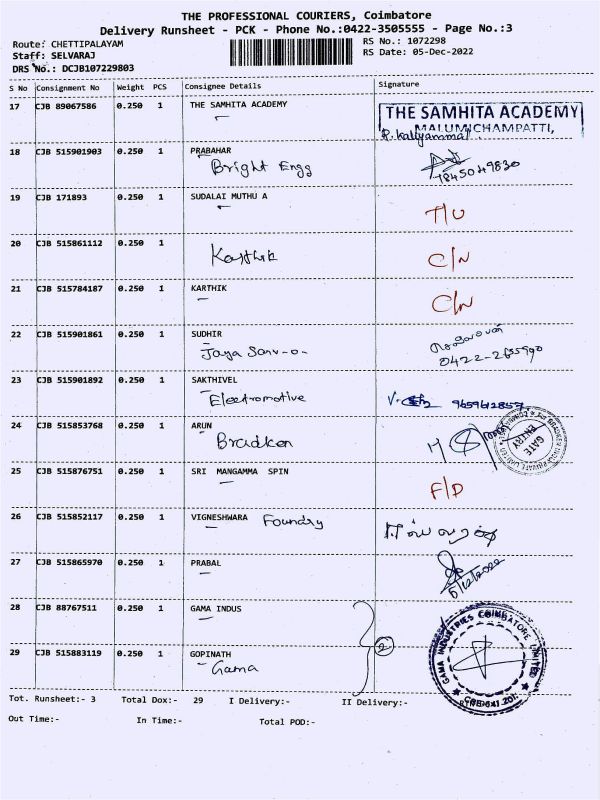 THE PROFESSIONAL COURIERS, Coimbatore
Delivery Runsheet - PCK - Phone No.:0422-3505555 - Page No.:3
Route: CHETTIPALAYAM
RS No.: 1072298
Staff: SELVARAJ
RS Date: 05-Dec-2022
DRS No.: DCJB107229803
S No Consignment No Weight PCS Consignee Details Signature
17 CJB 89067586 0.250 1 THE SAMHITA ACADEMY
THE SAMHITA ACADEMY
MALUMICHAMPATTI,
R. Kaliyammal
18 CJB 515901903 0.250 1 PRABAHAR
Bright Engg
9845049830
19 CJB 171893 0.250 1 SUDALAI MUTHU A
T/U
20 CJB 515861112 0.250 1
Karthik C/N
21 CJB 515784187 0.250 1 KARTHIK
C/N
22 CJB 515901861 0.250 1 SUDHIR
Jaya
23 CJB 515901892 0.250 1 SAKTHIVEL
Electromotive 9659612857
24 CJB 515853768 0.250 1 ARUN
Bradken
GATE ENTRY
25 CJB 515876751 0.250 1 SRI MANGAMMA SPIN
F/D
26 CJB 515852117 0.250 1 VIGNESHWARA Foundry
27 CJB 515865970 0.250 1 PRABAL
5/12/2022
28 CJB 88767511 0.250 1 GAMA INDUS
2
GAMA INDUSTRIES COIMBATORE LIMITED
29 CJB 515883119 0.250 1 GOPINATH
Gama
Tot. Runsheet:- 3 Total Dox:- 29 I Delivery:- II Delivery:-
Out Time:- In Time:- Total POD:-